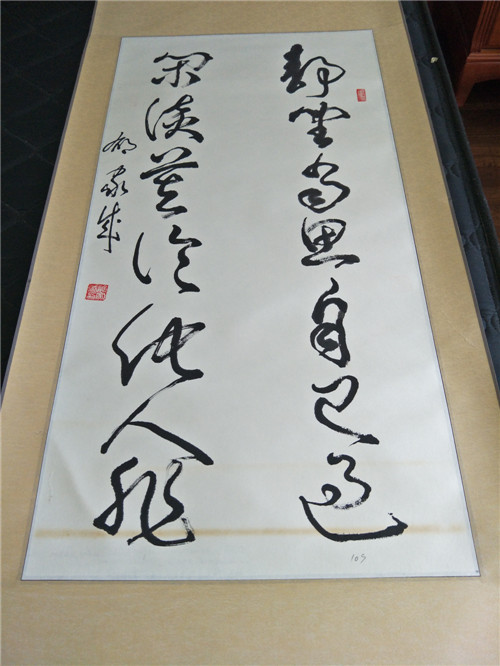 静坐常思自己过
闲谈莫论他人非
家成
105